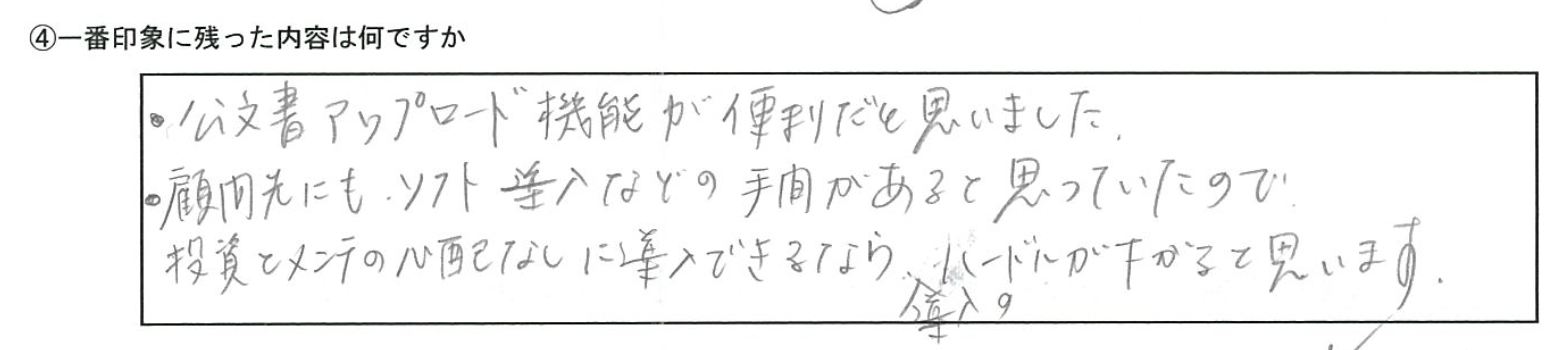 ④一番印象に残った内容は何ですか
・公文書アップロード機能が便利だと思いました.
・顧問先にも、ソフト導入などの手間があると思っていたので
投資とメンテの心配なしに導入できるなら、導入のハードルが下がると思います.